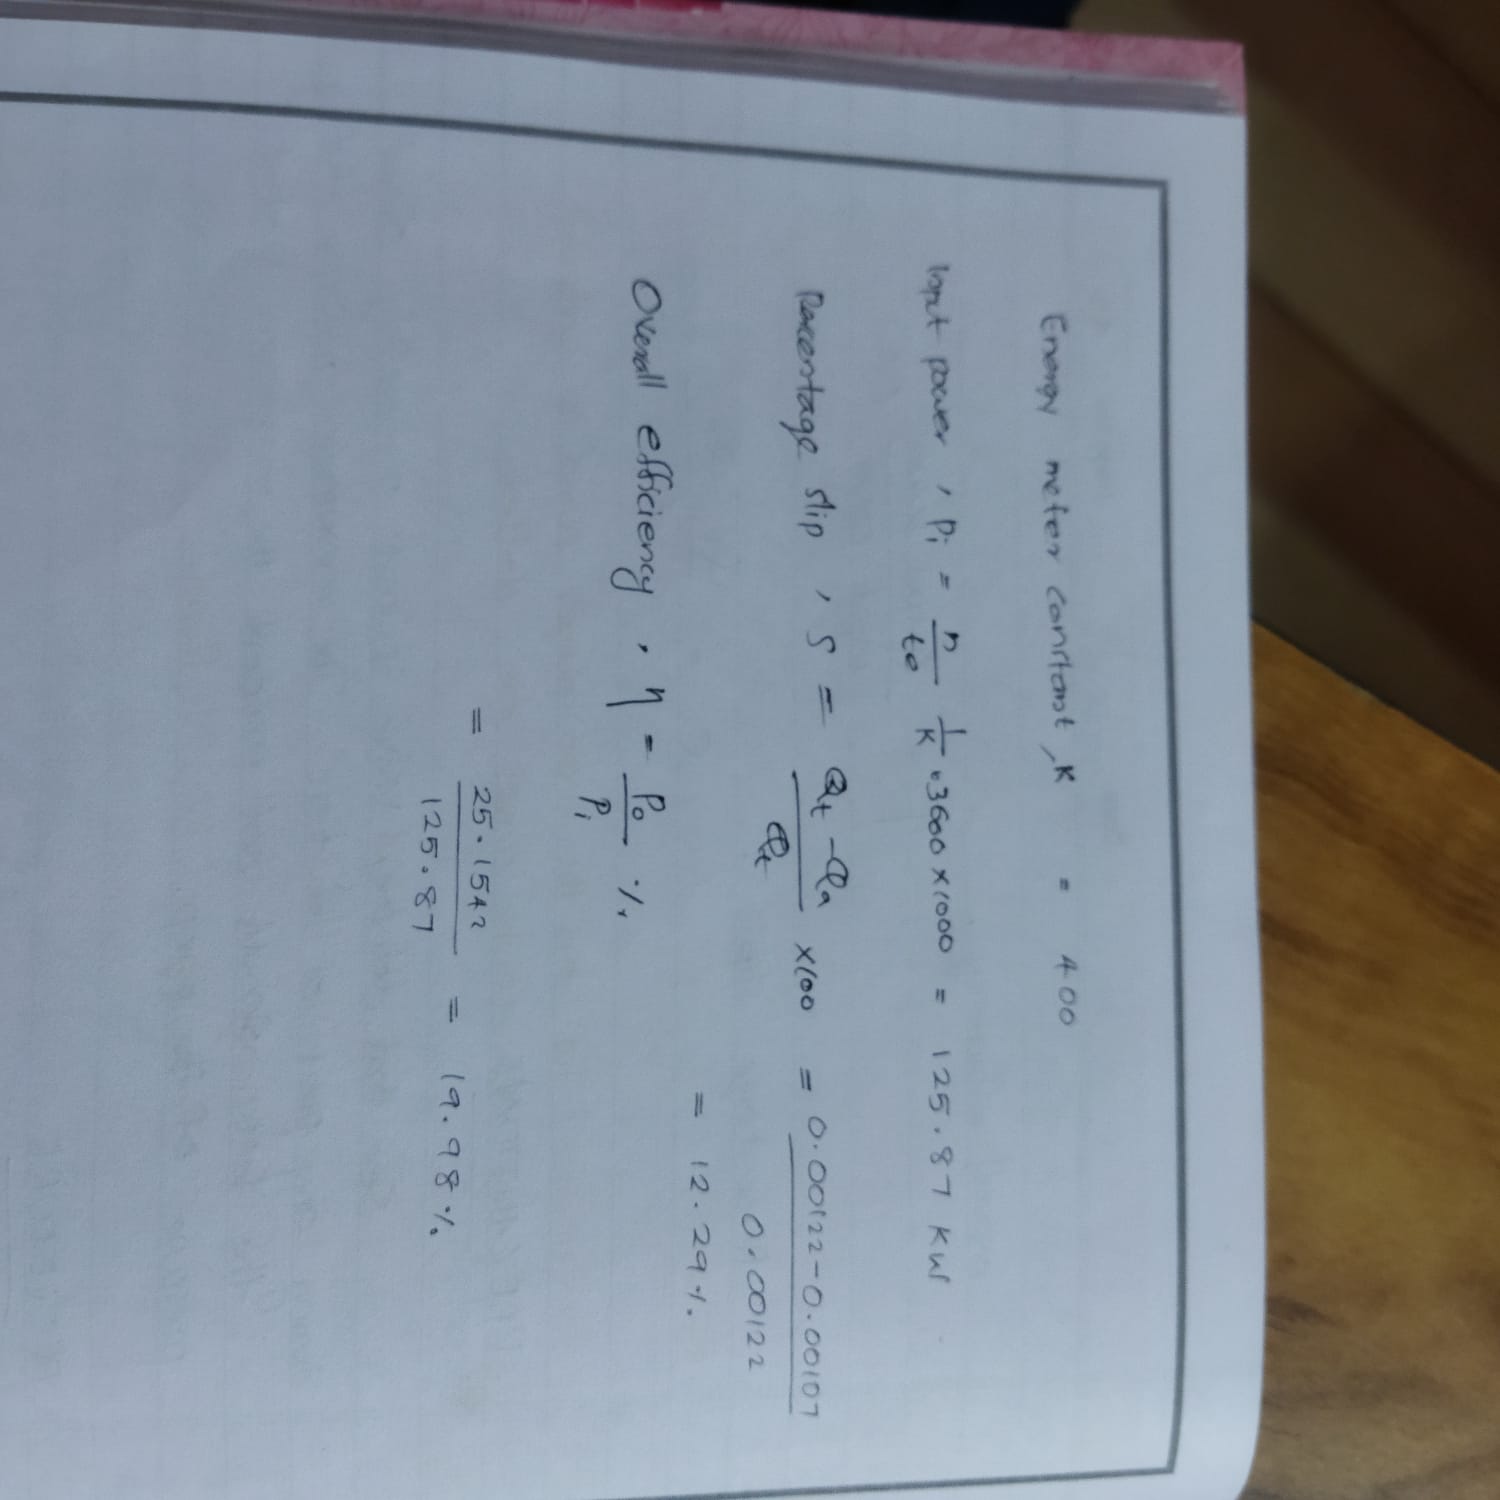 Energy meter constant, K = 400
Input power, Pi = n/te 1/K .3600 x1000 = 125.87 KW
Percentage slip, S = Qt - Qa/Qt x100 = 0.00122-0.00107/0.00122
= 12.29%.
Overall efficiency, η = Po/Pi %.
= 25.1542/125.87 = 19.98%.